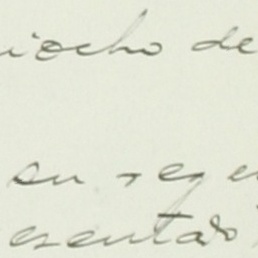 iocho de
su rege
esentado